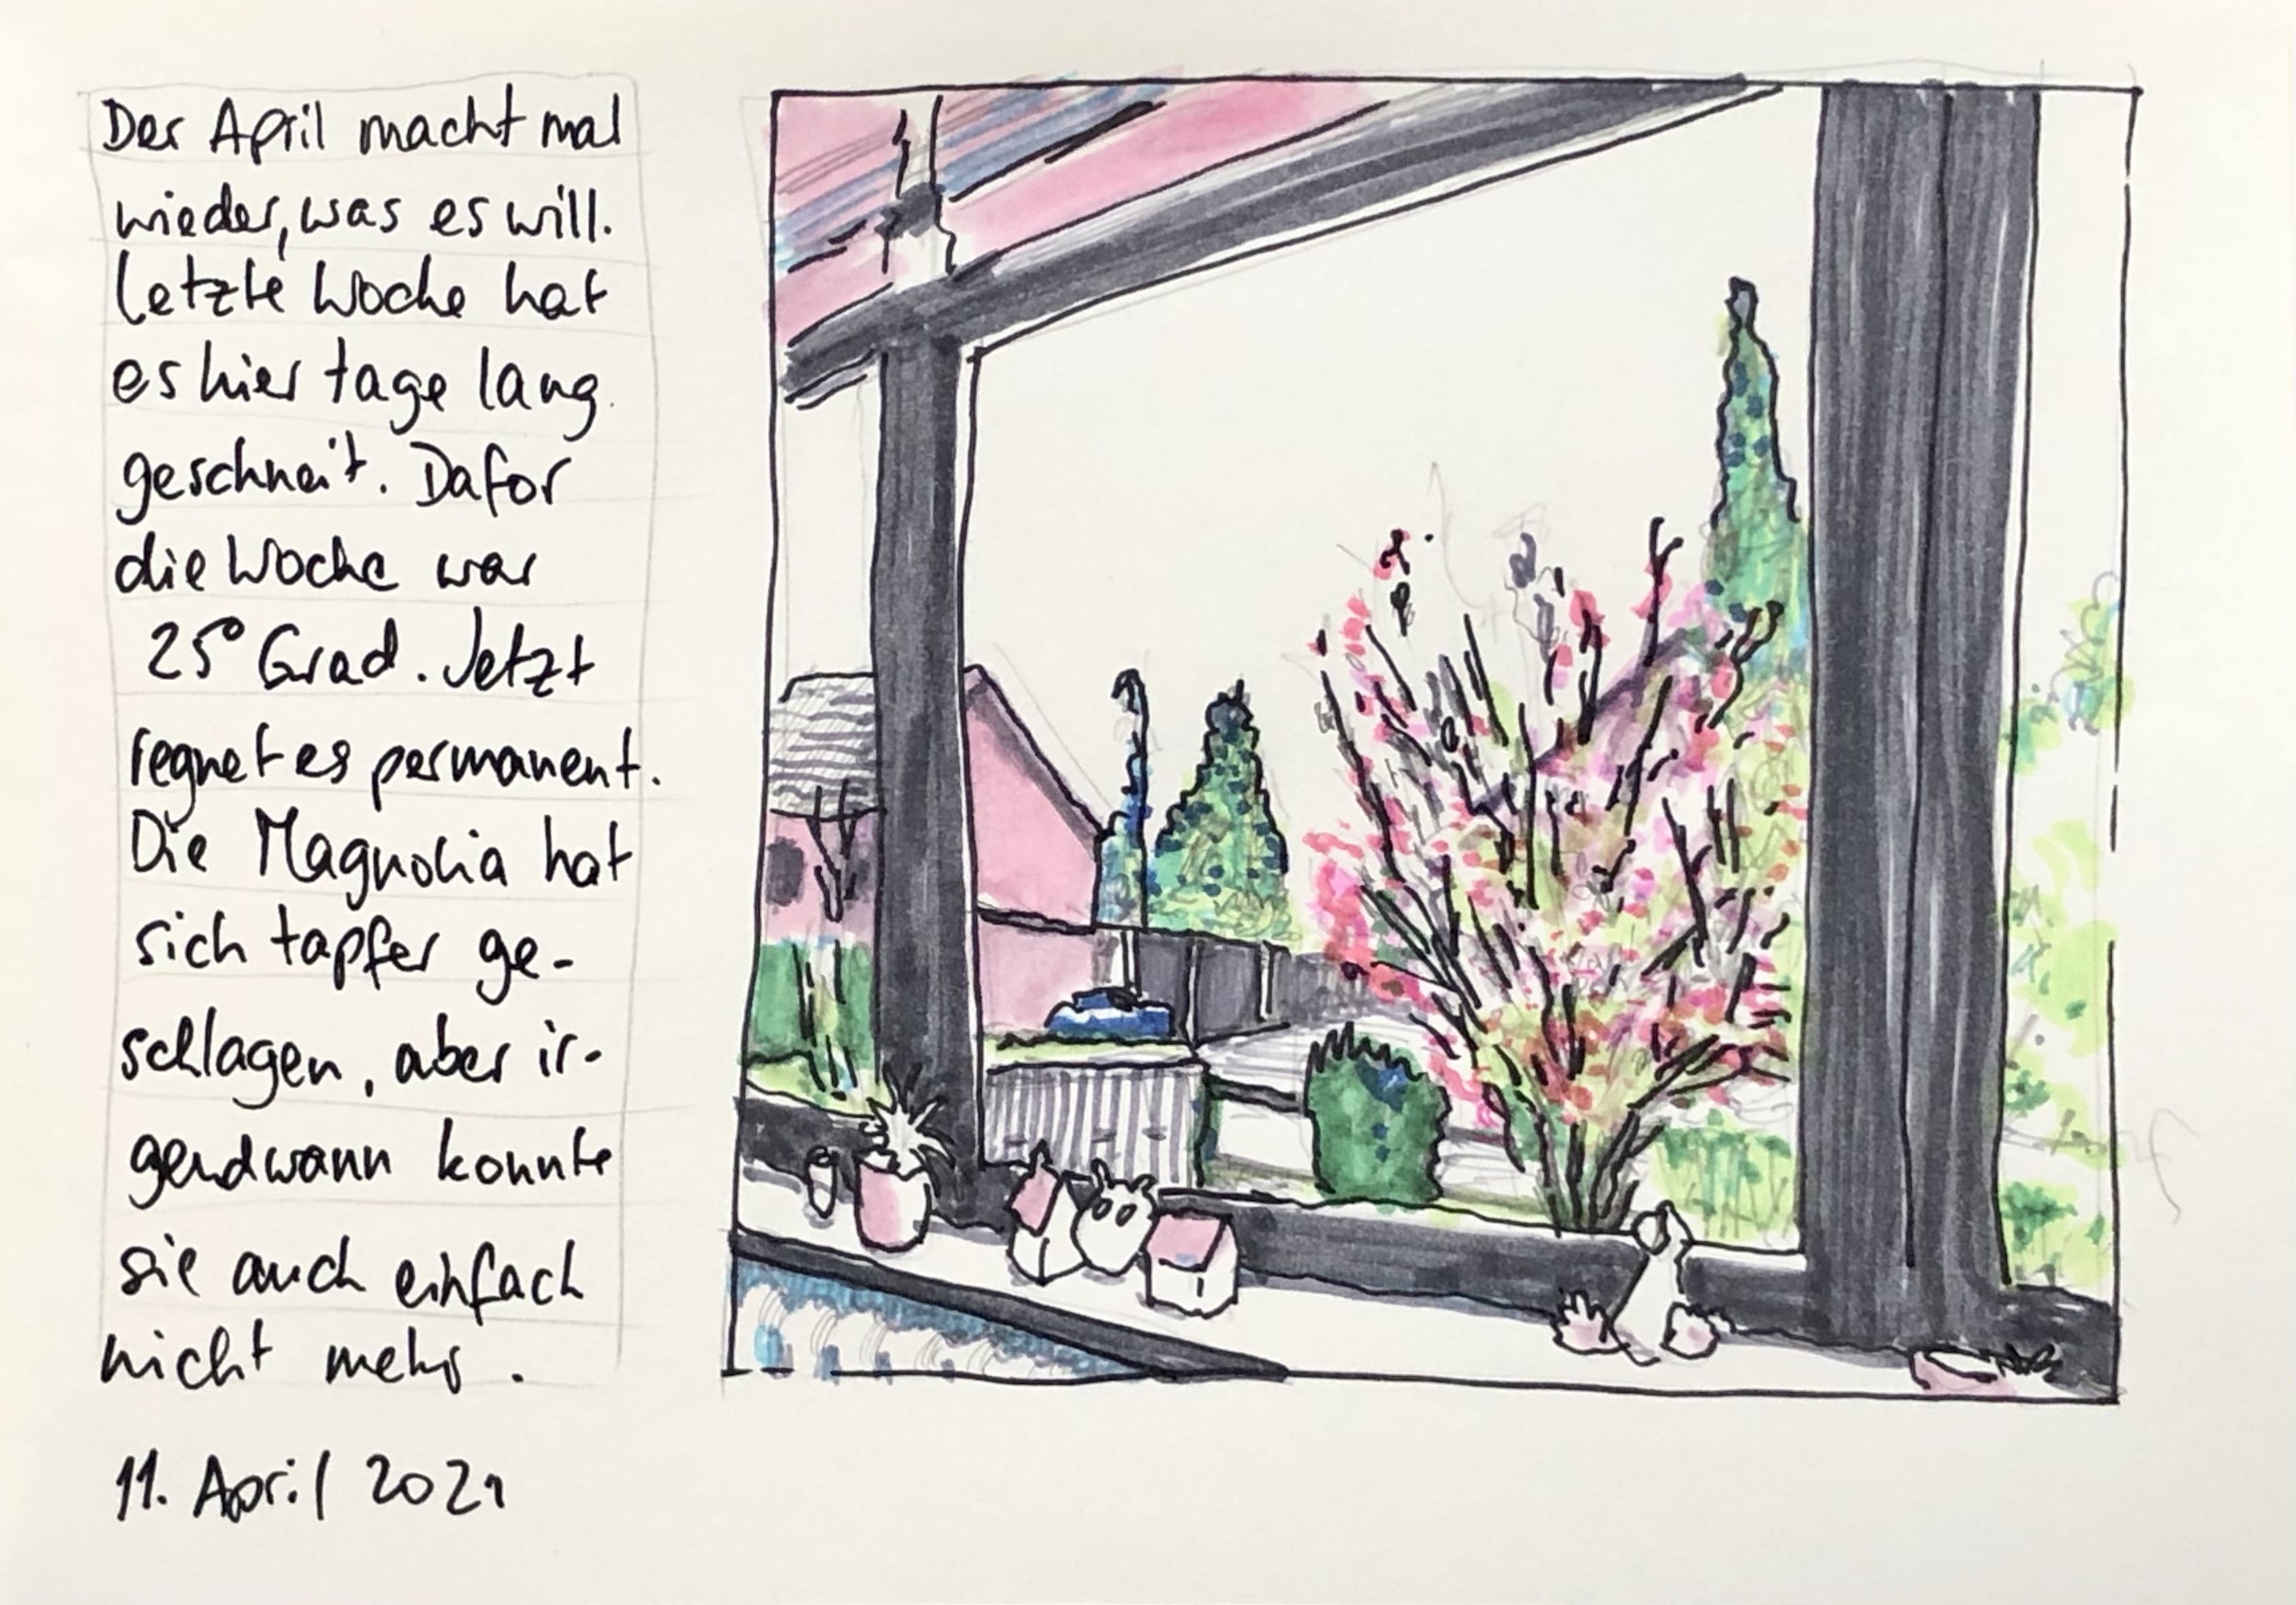 Der April macht mal
wieder, was es will.
Letzte Woche hat
es hier tage lang
geschneit. Dafor
die Woche war
25° Grad. Jetzt
regnet es permanent.
Die Magnolia hat
sich tapfer ge-
schlagen, aber ir-
gendwann konnte
sie auch einfach
nicht mehr.
11. April 2021